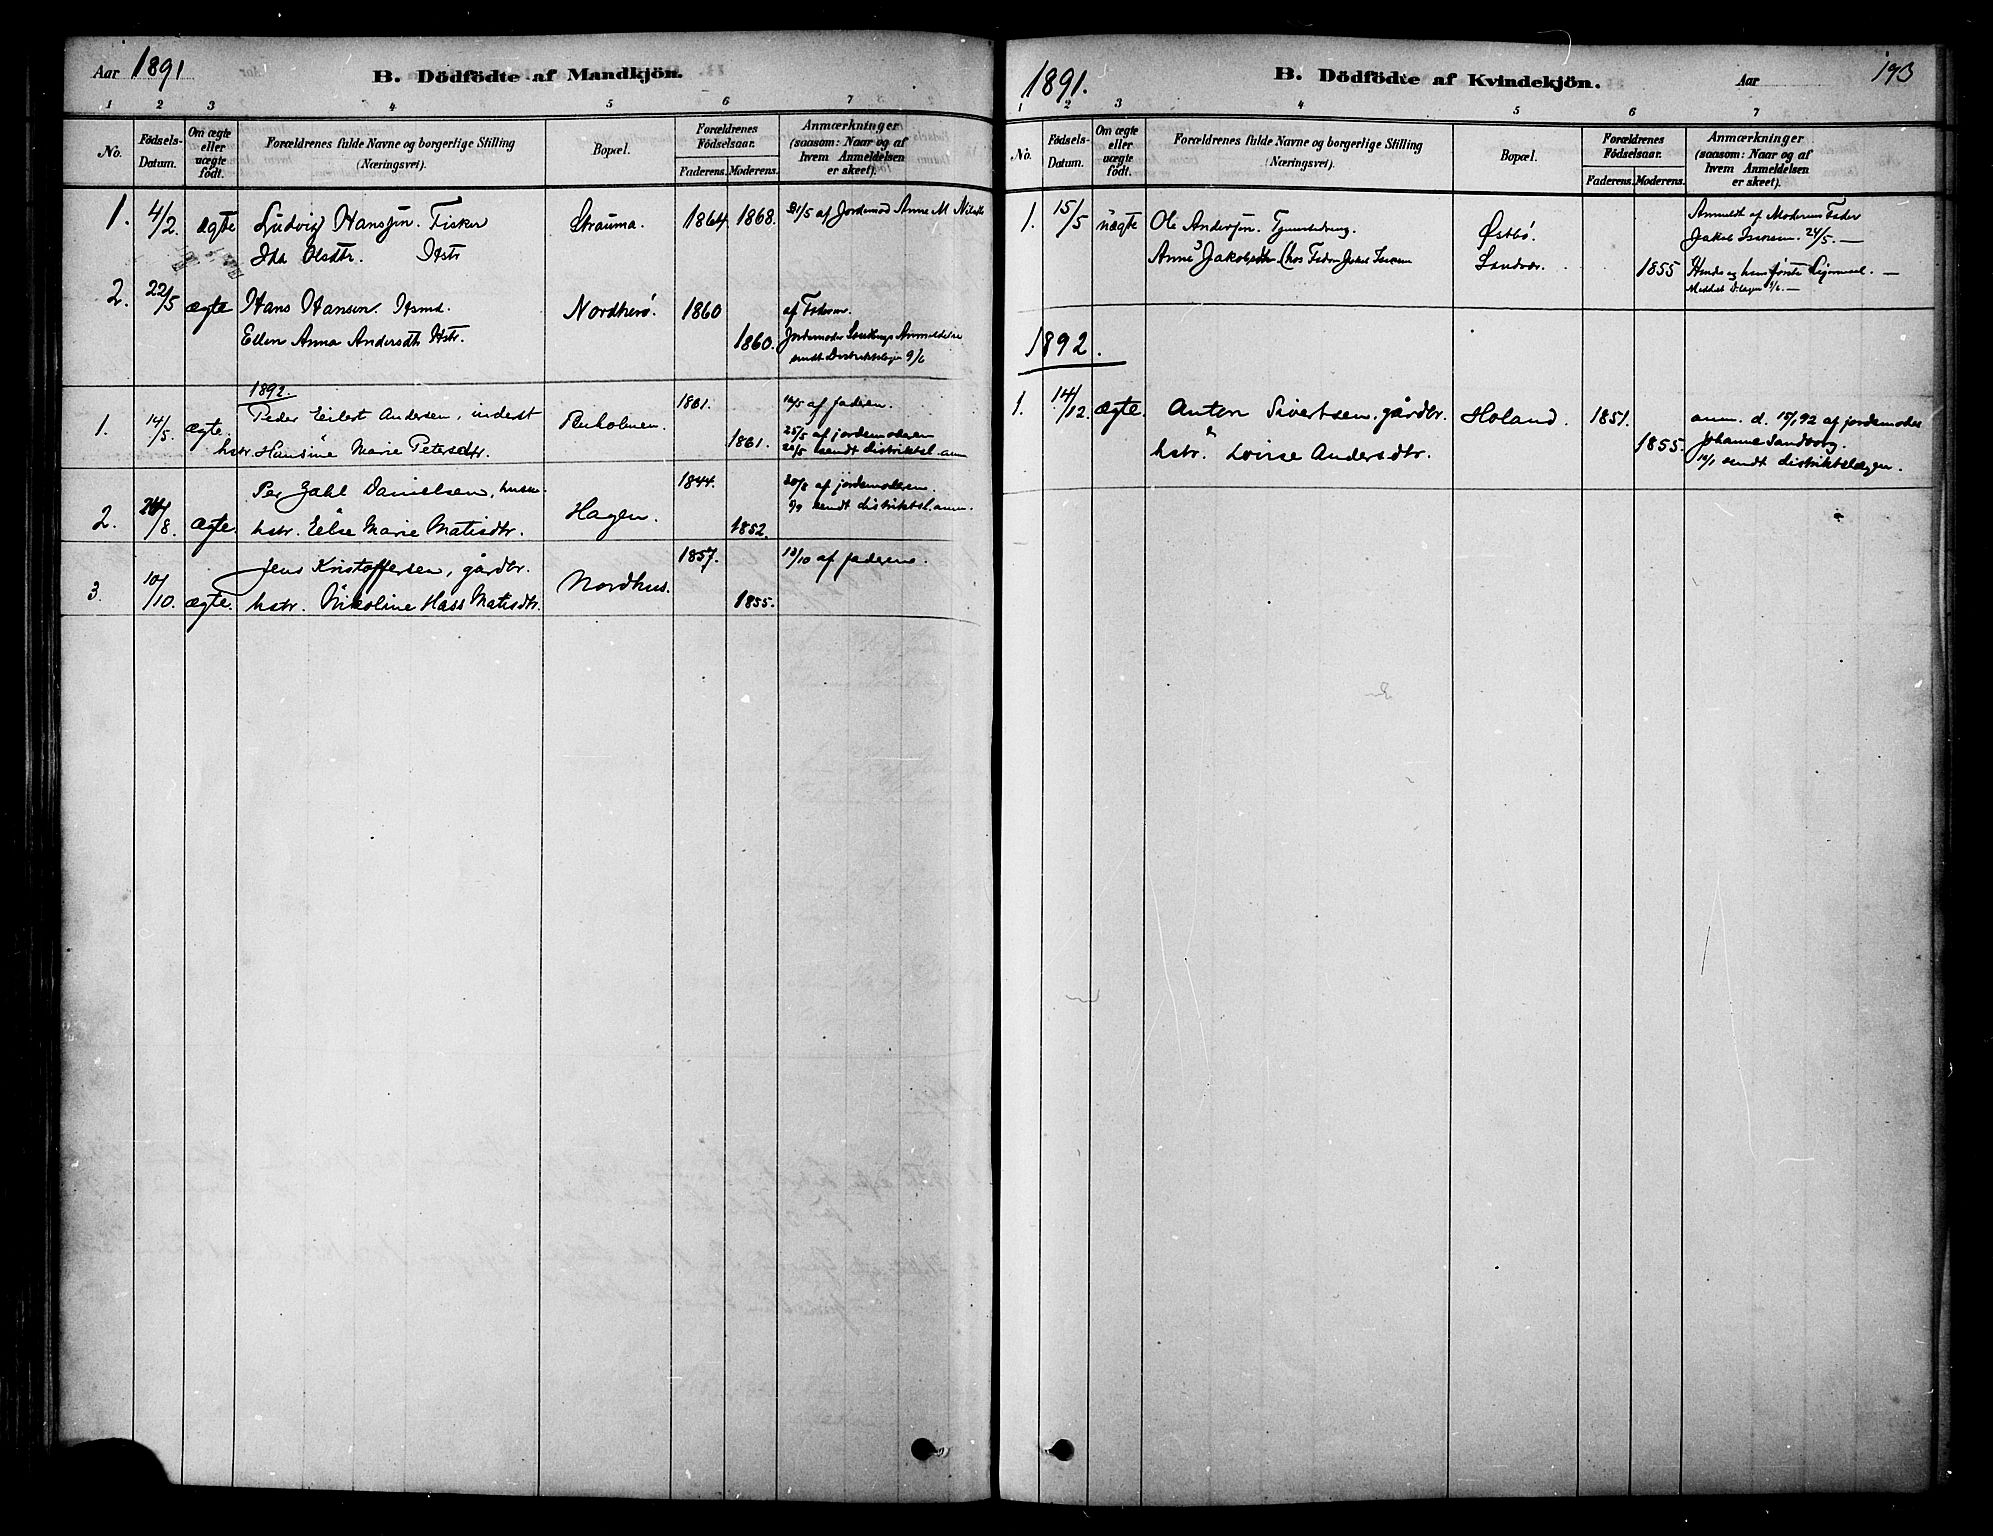 Aar 1891
B. Dödfödte af Mandkjön.
1 2 3 4 5 6 7
No.
Födsels-Datum.
Om ægte eller uægte födt.
Forældrenes fulde Navne og borgerlige Stilling
(Næringsvei).
Bopæl.
Forældrenes Födselsaar.
Faderens. Moderens.
Anmærkninger
(saasom: Naar og af
hvem Anmeldelsen
er skeet).
1. 4/2. ægte Ludvig Hansen. Fisker Strauma. 1864 1868. 21/5 af Jordemod Anne M
Ida Olsdtr. Hstr
2. 22/5 ægte Hans Hansen. Hsmd. Nordherö. 1860 af Faderen.
Ellen Anna Andersdtr Hstr. 1860. Jordemoder Anmeldelse
sendt Distriktslægen 9/6
1892.
1. 14/5. ægte. Peder Eilert Andersen, inderst Renholmen. 1861. 14/5 af faderen.
hstr. Hansine Marie Petersdtr. 1861. 25/5 af jordemoderen
25/5 sendt distriktsl. anm
2. 24/8. ægte. Per Zahl Danielsen, husm. Hagen. 1844. 30/8 af jordemoderen.
hstr. Else Marie Matisdtr. 1852. 9/9 sendt distriktsl. anm.
3. 10/10. ægte. Jens Kristoffersen, gårdbr. Nordhus. 1857. 13/10 af faderen.
hstr. Nikoline Hass Matisdtr. 1855.
1891.
B. Dödfödte af Kvindekjön.
Aar
193
1 2 3 4 5 6 7
No.
Födsels-Datum.
Om ægte eller uægte födt.
Forældrenes fulde Navne og borgerlige Stilling
(Næringsvei).
Bopæl.
Forældrenes Födselsaar.
Faderens. Moderens.
Anmærkninger
(saasom: Naar og af
hvem Anmeldelsen
er skeet).
1. 15/5 uægte Ole Andersen. Tjenestedreng. Østbö. Anmeldt af Moderens Fader
Jakob Isaksen. 24/5. —
Anne Jakobsdtr (hos Fader Jakob Sandvær. 1855 Hendes og hans første Leiermaal. —
1892.
1. 14/12 ægte. Anton Sivertsen, gårdbr. Holand. 1851. anm. d. 15/1 92 af jordemoder
& hstr. Lovise Andersdtr. 1855. Johanna Sandborg.
sendt distriktslægen.